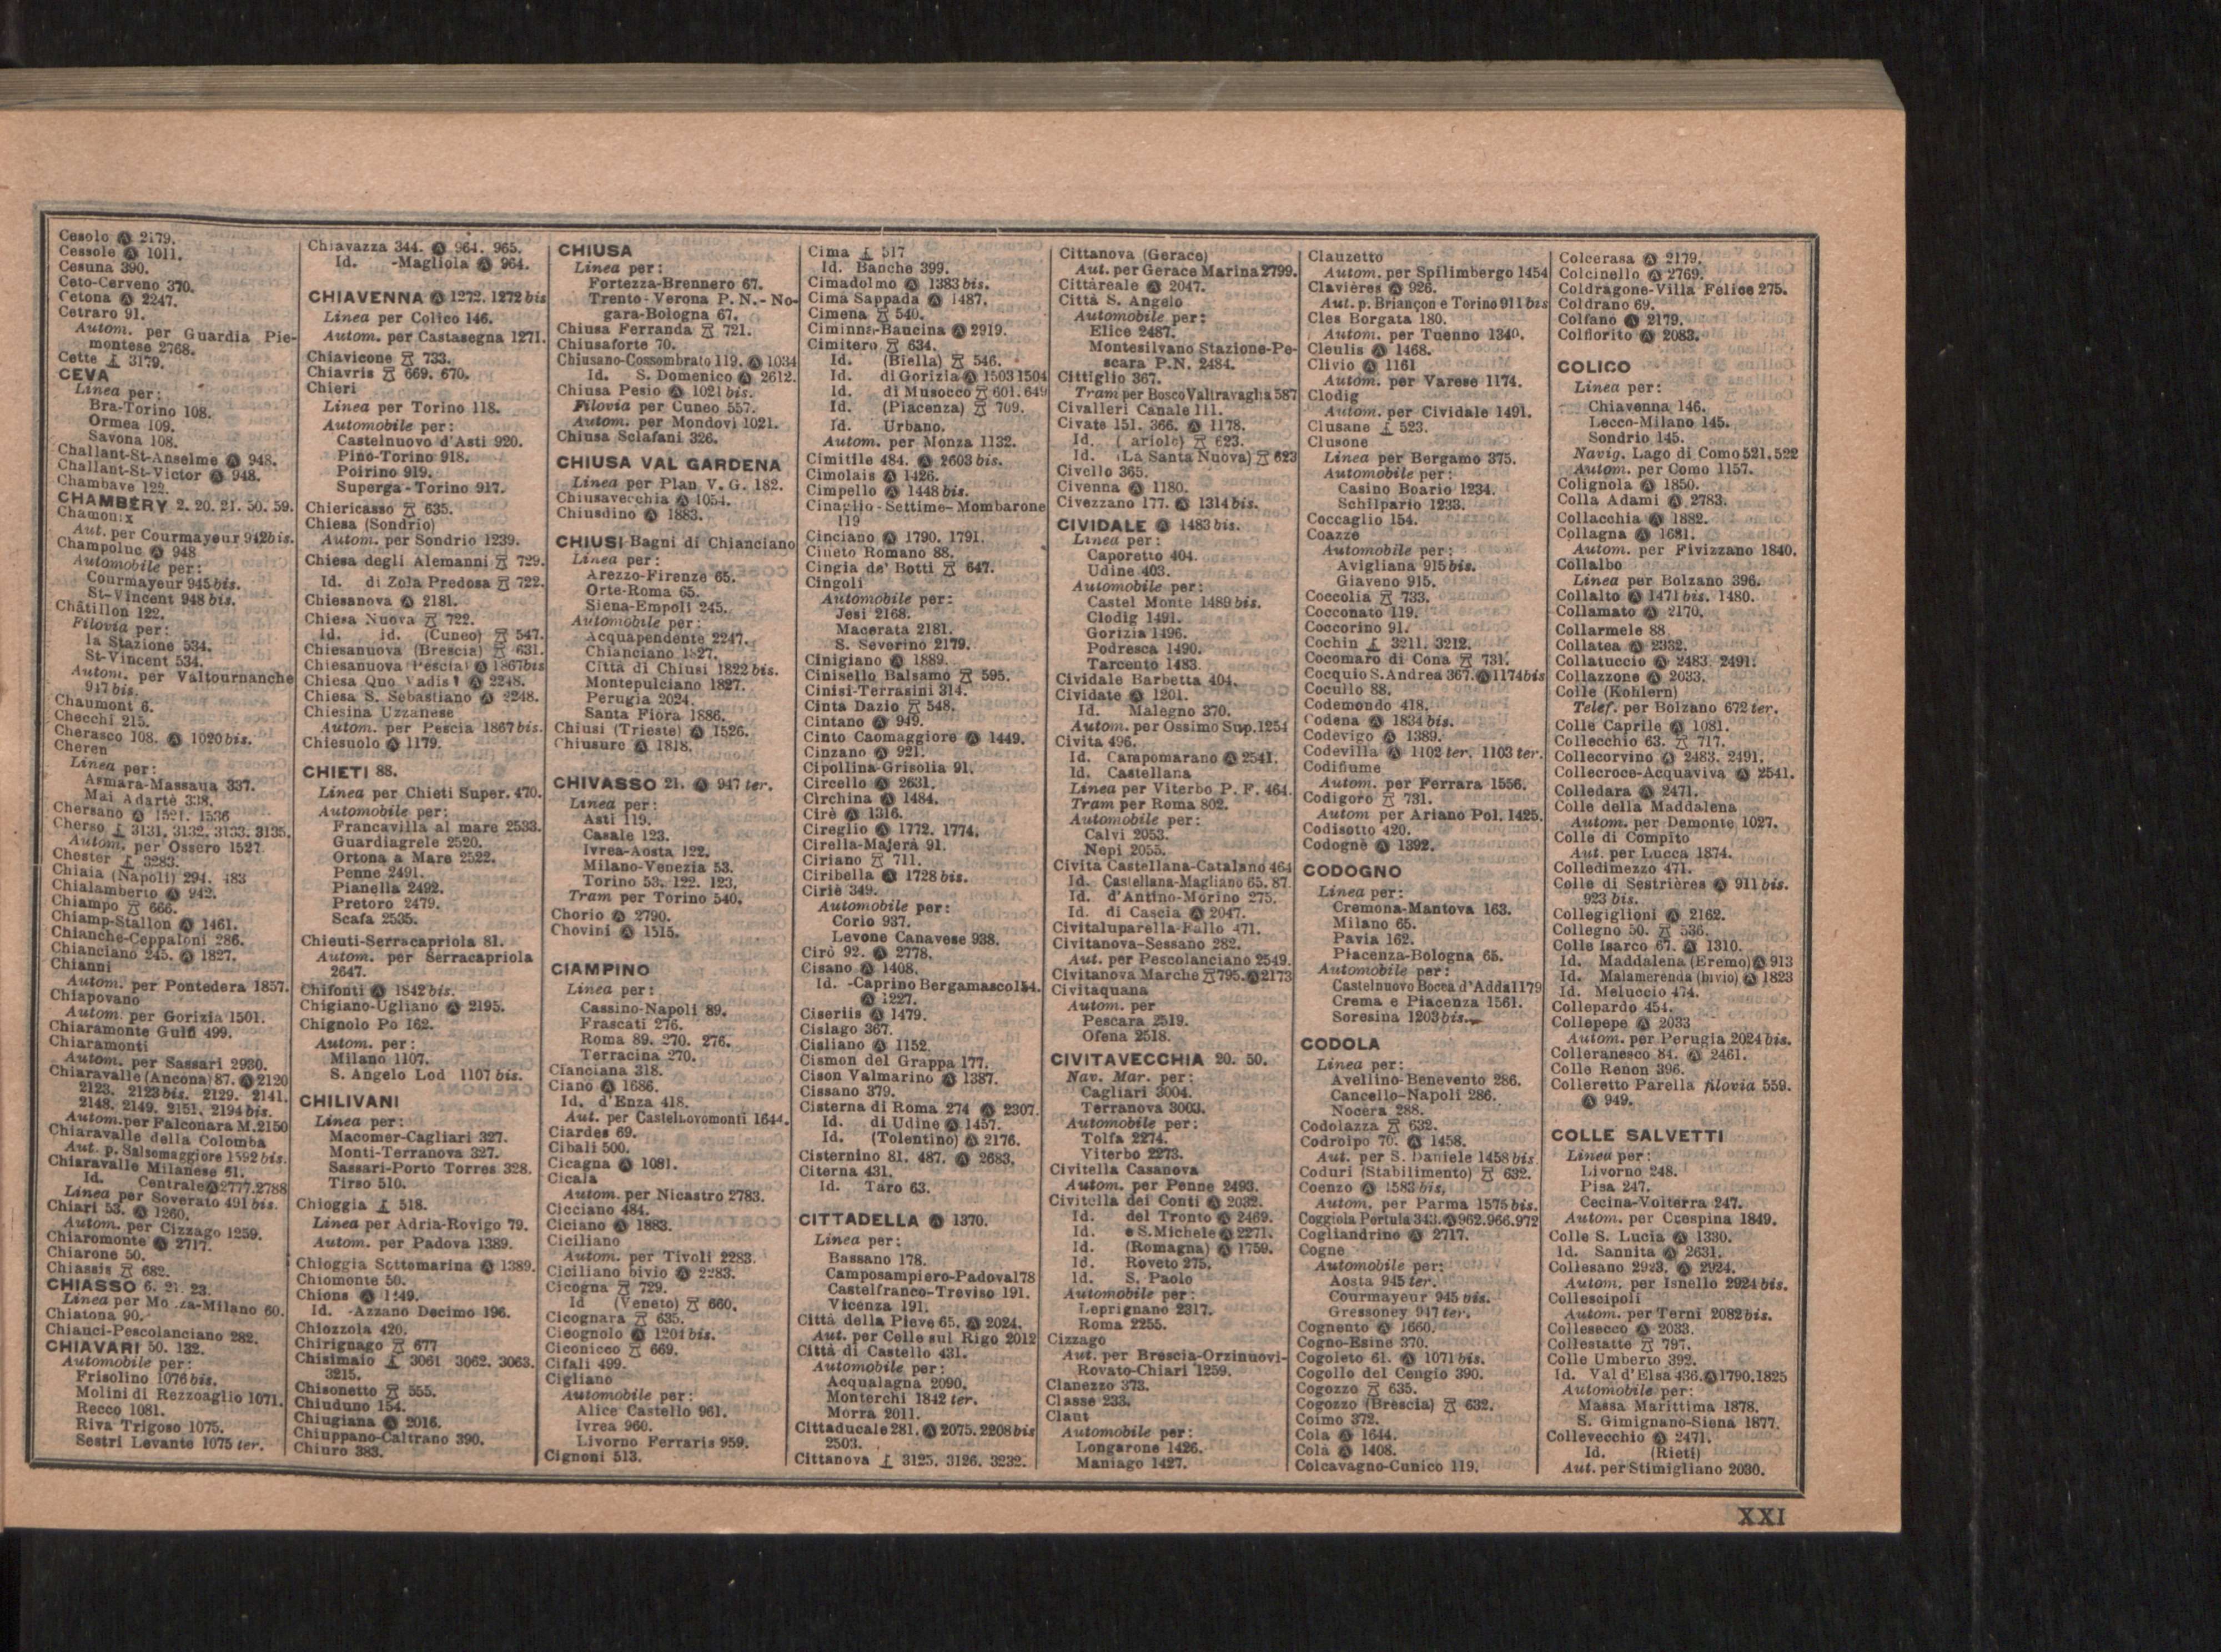 Cesolo Ⓐ 2179.
Cessole Ⓐ 1011.
Cesuna 390.
Ceto-Cerveno 370.
Cetona Ⓐ 2247.
Cetraro 91.
Autom. per Guardia Pie-
montese 2768.
Cette ⊥ 3179.
CEVA
Linea per:
Bra-Torino 108.
Ormea 109.
Savona 108.
Challant-St-Anselme Ⓐ 948.
Challant-St-Victor Ⓐ 948.
Chambave 122.
CHAMBÉRY 2. 20. 21. 50. 59.
Chamonix
Aut. per Courmayeur 942bis.
Champoluc Ⓐ 948
Automobile per:
Courmayeur 945 bis.
St-Vincent 948 bis.
Châtillon 122.
Filovia per:
la Stazione 534.
St-Vincent 534.
Autom. per Valtournanche
947 bis.
Chaumont 6.
Checchi 215.
Cherasco 108. Ⓐ 1020 bis.
Cheren
Linea per:
Asmara-Massaua 337.
Mai Adartè 338.
Chersano Ⓐ 1521. 1536
Cherso ⊥ 3131. 3132. 3133. 3135.
Autom. per Ossero 1527
Chester ⊥ 3283.
Chiaia (Napoli) 294. 483
Chialamberto Ⓐ 942.
Chiampo ⧖ 666.
Chiamp-Stallon Ⓐ 1461.
Chianche-Ceppaloni 286.
Chianciano 245. Ⓐ 1827.
Chianni
Autom. per Pontedera 1857.
Chiapovano
Autom. per Gorizia 1501.
Chiaramonte Gulfi 499.
Chiaramonti
Autom. per Sassari 2930.
Chiaravalle (Ancona) 87. Ⓐ 2120
2123. 2123 bis. 2129. 2141.
2148. 2149. 2151. 2194 bis.
Autom. per Falconara M. 2150
Chiaravalle della Colomba
Aut. p. Salsomaggiore 1592 bis.
Chiaravalle Milanese 61.
Id. Centrale Ⓐ 2777. 2788
Linea per Soverato 491 bis.
Chiari 53. Ⓐ 1260.
Autom. per Cizzago 1259.
Chiaromonte Ⓐ 2717.
Chiarone 50.
Chiassis ⧖ 682.
CHIASSO 6. 21. 23.
Linea per Mo za-Milano 60.
Chiatona 90.
Chiauci-Pescolanciano 282.
CHIAVARI 50. 132.
Automobile per:
Frisolino 1076 bis.
Molini di Rezzoaglio 1071.
Recco 1081.
Riva Trigoso 1075.
Sestri Levante 1075 ter.
Chiavazza 344. Ⓐ 964. 965.
Id. -Magliola Ⓐ 964.
CHIAVENNA Ⓐ 1272. 1272 bis
Linea per Colico 146.
Autom. per Castasegna 1271.
Chiavicone ⧖ 733.
Chiavris ⧖ 669. 670.
Chieri
Linea per Torino 118.
Automobile per:
Castelnuovo d'Asti 920.
Pino-Torino 918.
Poirino 919.
Superga-Torino 917.
Chiericasso ⧖ 635.
Chiesa (Sondrio)
Autom. per Sondrio 1239.
Chiesa degli Alemanni ⧖ 729.
Id. di Zola Predosa ⧖ 722.
Chiesanova Ⓐ 2181.
Chiesa Nuova ⧖ 722.
Id. id. (Cuneo) ⧖ 547.
Chiesanuova (Brescia) ⧖ 631.
Chiesanuova Pescia) Ⓐ 1867bis
Chiesa Quo Vadis? Ⓐ 2248.
Chiesa S. Sebastiano Ⓐ 2248.
Chiesina Uzzanese
Autom. per Pescia 1867 bis.
Chiesuolo Ⓐ 1179.
CHIETI 88.
Linea per Chieti Super. 470.
Automobile per:
Francavilla al mare 2533.
Guardiagrele 2520.
Ortona a Mare 2522.
Penne 2491.
Pianella 2492.
Pretoro 2479.
Scafa 2535.
Chieuti-Serracapriola 81.
Autom. per Serracapriola
2647.
Chifonti Ⓐ 1842 bis.
Chigiano-Ugliano Ⓐ 2195.
Chignolo Po 162.
Autom. per:
Milano 1107.
S. Angelo Lod 1107 bis.
CHILIVANI
Linea per:
Macomer-Cagliari 327.
Monti-Terranova 327.
Sassari-Porto Torres 328.
Tirso 510.
Chioggia ⊥ 518.
Linea per Adria-Rovigo 79.
Autom. per Padova 1389.
Chioggia Sottomarina Ⓐ 1389.
Chiomonte 50.
Chions Ⓐ 1449.
Id. -Azzano Decimo 196.
Chiozzola 420.
Chirignago ⧖ 677
Chisimaio ⊥ 3061 3062. 3063.
3215.
Chisonetto ⧖ 555.
Chiuduno 154.
Chiugiana Ⓐ 2016.
Chiuppano-Caltrano 390.
Chiuro 383.
CHIUSA
Linea per:
Fortezza-Brennero 67.
Trento-Verona P. N.-No-
gara-Bologna 67.
Chiusa Ferranda ⧖ 721.
Chiusaforte 70.
Chiusano-Cossombrato 119. Ⓐ 1034
Id. S. Domenico Ⓐ 2612.
Chiusa Pesio Ⓐ 1021 bis.
Filovia per Cuneo 557.
Autom. per Mondovì 1021.
Chiusa Sclafani 326.
CHIUSA VAL GARDENA
Linea per Plan V. G. 182.
Chiusavecchia Ⓐ 1054.
Chiusdino Ⓐ 1883.
CHIUSI Bagni di Chianciano
Linea per:
Arezzo-Firenze 65.
Orte-Roma 65.
Siena-Empoli 245.
Automobile per:
Acquapendente 2247.
Chianciano 1827.
Città di Chiusi 1822 bis.
Montepulciano 1827.
Perugia 2024.
Santa Fiora 1886.
Chiusi (Trieste) Ⓐ 1526.
Chiusure Ⓐ 1818.
CHIVASSO 21. Ⓐ 947 ter.
Linea per:
Asti 119.
Casale 123.
Ivrea-Aosta 122.
Milano-Venezia 53.
Torino 53. 122. 123.
Tram per Torino 540.
Chorio Ⓐ 2790.
Chovini Ⓐ 1515.
CIAMPINO
Linea per:
Cassino-Napoli 89.
Frascati 276.
Roma 89. 270. 276.
Terracina 270.
Cianciana 318.
Ciano Ⓐ 1686.
Id. d'Enza 418.
Aut. per Castelnovomonti 1644.
Ciardes 69.
Cibali 500.
Cicagna Ⓐ 1081.
Cicala
Autom. per Nicastro 2783.
Cicciano 484.
Ciciano Ⓐ 1883.
Ciciliano
Autom. per Tivoli 2283.
Ciciliano bivio Ⓐ 2283.
Cicogna ⧖ 729.
Id (Veneto) ⧖ 660.
Cicognara ⧖ 635.
Cicognolo Ⓐ 1201 bis.
Ciconicco ⧖ 669.
Cifali 499.
Cigliano
Automobile per:
Alice Castello 961.
Ivrea 960.
Livorno Ferraris 959.
Cignoni 513.
Cima ⊥ 517
Id. Banche 399.
Cimadolmo Ⓐ 1383 bis.
Cima Sappada Ⓐ 1487.
Cimena ⧖ 540.
Ciminna-Baucina Ⓐ 2919.
Cimitero ⧖ 634.
Id. (Biella) ⧖ 546.
Id. di Gorizia Ⓐ 1503 1504
Id. di Musocco ⧖ 601. 649
Id. (Piacenza) ⧖ 709.
Id. Urbano.
Autom. per Monza 1132.
Cimitile 484. Ⓐ 2603 bis.
Cimolais Ⓐ 1426.
Cimpello Ⓐ 1448 bis.
Cinaglio-Settime-Mombarone
119
Cinciano Ⓐ 1790. 1791.
Cineto Romano 88.
Cingia de' Botti ⧖ 647.
Cingoli
Automobile per:
Jesi 2168.
Macerata 2181.
S. Severino 2179.
Cinigiano Ⓐ 1889.
Cinisello Balsamo ⧖ 595.
Cinisi-Terrasini 314.
Cinta Dazio ⧖ 548.
Cintano Ⓐ 949.
Cinto Caomaggiore Ⓐ 1449.
Cinzano Ⓐ 921.
Cipollina-Grisolia 91.
Circello Ⓐ 2631.
Circhina Ⓐ 1484.
Cirè Ⓐ 1316.
Cireglio Ⓐ 1772. 1774.
Cirella-Majerà 91.
Ciriano ⧖ 711.
Ciribella Ⓐ 1728 bis.
Ciriè 349.
Automobile per:
Corio 937.
Levone Canavese 938.
Cirò 92. Ⓐ 2778.
Cisano Ⓐ 1408.
Id. -Caprino Bergamasco 154.
Ⓐ 1227.
Ciseriis Ⓐ 1479.
Cislago 367.
Cisliano Ⓐ 1152.
Cismon del Grappa 177.
Cison Valmarino Ⓐ 1387.
Cissano 379.
Cisterna di Roma 274 Ⓐ 2307.
Id. di Udine Ⓐ 1457.
Id. (Tolentino) Ⓐ 2176.
Cisternino 81. 487. Ⓐ 2683.
Citerna 431.
Id. Taro 63.
CITTADELLA Ⓐ 1370.
Linea per:
Bassano 178.
Camposampiero-Padova 178
Castelfranco-Treviso 191.
Vicenza 191.
Città della Pieve 65. Ⓐ 2024.
Aut. per Celle sul Rigo 2012
Città di Castello 431.
Automobile per:
Acqualagna 2090.
Monterchi 1842 ter.
Morra 2011.
Cittaducale 281. Ⓐ 2075. 2208 bis
2503.
Cittanova ⊥ 3125. 3126. 3232.
Cittanova (Gerace)
Aut. per Gerace Marina 2799.
Cittàreale Ⓐ 2047.
Città S. Angelo
Automobile per:
Elice 2487.
Montesilvano Stazione-Pe-
scara P.N. 2484.
Cittiglio 367.
Tram per Bosco Valtravaglia 587
Civalleri Canale 111.
Civate 151. 366. Ⓐ 1178.
Id. ( ariolo) ⧖ 623.
Id. (La Santa Nuova) ⧖ 623
Civello 365.
Civenna Ⓐ 1180.
Civezzano 177. Ⓐ 1314 bis.
CIVIDALE Ⓐ 1483 bis.
Linea per:
Caporetto 404.
Udine 403.
Automobile per:
Castel Monte 1489 bis.
Clodig 1491.
Gorizia 1496.
Podresca 1490.
Tarcento 1483.
Cividale Barbetta 404.
Cividate Ⓐ 1201.
Id. Malegno 370.
Autom. per Ossimo Sup. 1254
Civita 496.
Id. Campomarano Ⓐ 2541.
Id. Castellana
Linea per Viterbo P. F. 464.
Tram per Roma 802.
Automobile per:
Calvi 2053.
Nepi 2055.
Civita Castellana-Catalano 464
Id. Castellana-Magliano 65. 87.
Id. d'Antino-Morino 275.
Id. di Cascia Ⓐ 2047.
Civitaluparella-Fallo 471.
Civitanova-Sessano 282.
Aut. per Pescolanciano 2549.
Civitanova Marche ⧖ 795. Ⓐ 2173
Civitaquana
Autom. per
Pescara 2519.
Ofena 2518.
CIVITAVECCHIA 20. 50.
Nav. Mar. per:
Cagliari 3004.
Terranova 3003.
Automobile per:
Tolfa 2274.
Viterbo 2273.
Civitella Casanova
Autom. per Penne 2493.
Civitella dei Conti Ⓐ 2032.
Id. del Tronto Ⓐ 2469.
Id. e S. Michele Ⓐ 2271.
Id. (Romagna) Ⓐ 1759.
Id. Roveto 275.
Id. S. Paolo
Automobile per:
Leprignano 2317.
Roma 2255.
Cizzago
Aut. per Brescia-Orzinuovi-
Rovato-Chiari 1259.
Clanezzo 373.
Classe 233.
Claut
Automobile per:
Longarone 1426.
Maniago 1427.
Clauzetto
Autom. per Spilimbergo 1454
Clavières Ⓐ 926.
Aut. p. Briançon e Torino 911 bis
Cles Borgata 180.
Autom. per Tuenno 1340.
Cleulis Ⓐ 1468.
Clivio Ⓐ 1161
Autom. per Varese 1174.
Clodig
Autom. per Cividale 1491.
Clusane ⊥ 523.
Clusone
Linea per Bergamo 375.
Automobile per:
Casino Boario 1234.
Schilpario 1233.
Coccaglio 154.
Coazze
Automobile per:
Avigliana 915 bis.
Giaveno 915.
Coccolia ⧖ 733.
Cocconato 119.
Coccorino 91.
Cochin ⊥ 3211. 3212.
Cocomaro di Cona ⧖ 731.
Cocquio S. Andrea 367. Ⓐ 1174bis
Cocullo 88.
Codemondo 418.
Codena Ⓐ 1834 bis.
Codevigo Ⓐ 1389.
Codevilla Ⓐ 1102 ter. 1103 ter.
Codifiume
Autom. per Ferrara 1556.
Codigoro ⧖ 731.
Autom per Ariano Pol. 1425.
Codisotto 420.
Codognè Ⓐ 1392.
CODOGNO
Linea per:
Cremona-Mantova 163.
Milano 65.
Pavia 162.
Piacenza-Bologna 65.
Automobile per:
Castelnuovo Bocca d'Adda 1179
Crema e Piacenza 1561.
Soresina 1203 bis.
CODOLA
Linea per:
Avellino-Benevento 286.
Cancello-Napoli 286.
Nocera 288.
Codolazza ⧖ 632.
Codroipo 70. Ⓐ 1458.
Aut. per S. Daniele 1458 bis
Coduri (Stabilimento) ⧖ 632.
Coenzo Ⓐ 1583 bis.
Autom. per Parma 1575 bis.
Coggiola Portula 343. Ⓐ 962. 966. 972
Cogliandrino Ⓐ 2717.
Cogne
Automobile per:
Aosta 945 ter.
Courmayeur 945 bis.
Gressoney 947 ter.
Cognento Ⓐ 1660.
Cogno-Esine 370.
Cogoleto 61. Ⓐ 1071 bis.
Cogollo del Cengio 390.
Cogozzo ⧖ 635.
Cogozzo (Brescia) ⧖ 632.
Coimo 372.
Cola Ⓐ 1644.
Colà Ⓐ 1408.
Colcavagno-Cunico 119.
Colcerasa Ⓐ 2179.
Colcinello Ⓐ 2769.
Coldragone-Villa Felice 275.
Coldrano 69.
Colfano Ⓐ 2179.
Colfiorito Ⓐ 2083.
COLICO
Linea per:
Chiavenna 146.
Lecco-Milano 145.
Sondrio 145.
Navig. Lago di Como 521. 522
Autom. per Como 1157.
Colignola Ⓐ 1850.
Colla Adami Ⓐ 2783.
Collacchia Ⓐ 1882.
Collagna Ⓐ 1681.
Autom. per Fivizzano 1840.
Collalbo
Linea per Bolzano 396.
Collalto Ⓐ 1471 bis. 1480.
Collamato Ⓐ 2170.
Collarmele 88
Collatea Ⓐ 2332.
Collatuccio Ⓐ 2483. 2491.
Collazzone Ⓐ 2033.
Colle (Kohlern)
Telef. per Bolzano 672 ter.
Colle Caprile Ⓐ 1081.
Collecchio 63. ⧖ 717.
Collecorvino Ⓐ 2483. 2491.
Collecroce-Acquaviva Ⓐ 2541.
Colledara Ⓐ 2471.
Colle della Maddalena
Autom. per Demonte 1027.
Colle di Compito
Aut. per Lucca 1874.
Colledimezzo 471.
Colle di Sestrières Ⓐ 911 bis.
923 bis.
Collegiglioni Ⓐ 2162.
Collegno 50. ⧖ 536.
Colle Isarco 67. Ⓐ 1310.
Id. Maddalena (Eremo) Ⓐ 913
Id. Malamerenda (bivio) Ⓐ 1823
Id. Meluccio 474.
Collepardo 454.
Collepepe Ⓐ 2033
Autom. per Perugia 2024 bis.
Colleranesco 84. Ⓐ 2461.
Colle Renon 396.
Colleretto Parella filovia 559.
Ⓐ 949.
COLLE SALVETTI
Linea per:
Livorno 248.
Pisa 247.
Cecina-Volterra 247.
Autom. per Crespina 1849.
Colle S. Lucia Ⓐ 1330.
Id. Sannita Ⓐ 2631.
Collesano 2923. Ⓐ 2924.
Autom. per Isnello 2924 bis.
Collescipoli
Autom. per Terni 2082 bis.
Collesecco Ⓐ 2033.
Collestatte ⧖ 797.
Colle Umberto 392.
Id. Val d'Elsa 436. Ⓐ 1790. 1825
Automobile per:
Massa Marittima 1878.
S. Gimignano-Siena 1877.
Collevecchio Ⓐ 2471.
Id. (Rieti)
Aut. per Stimigliano 2030.
XXI